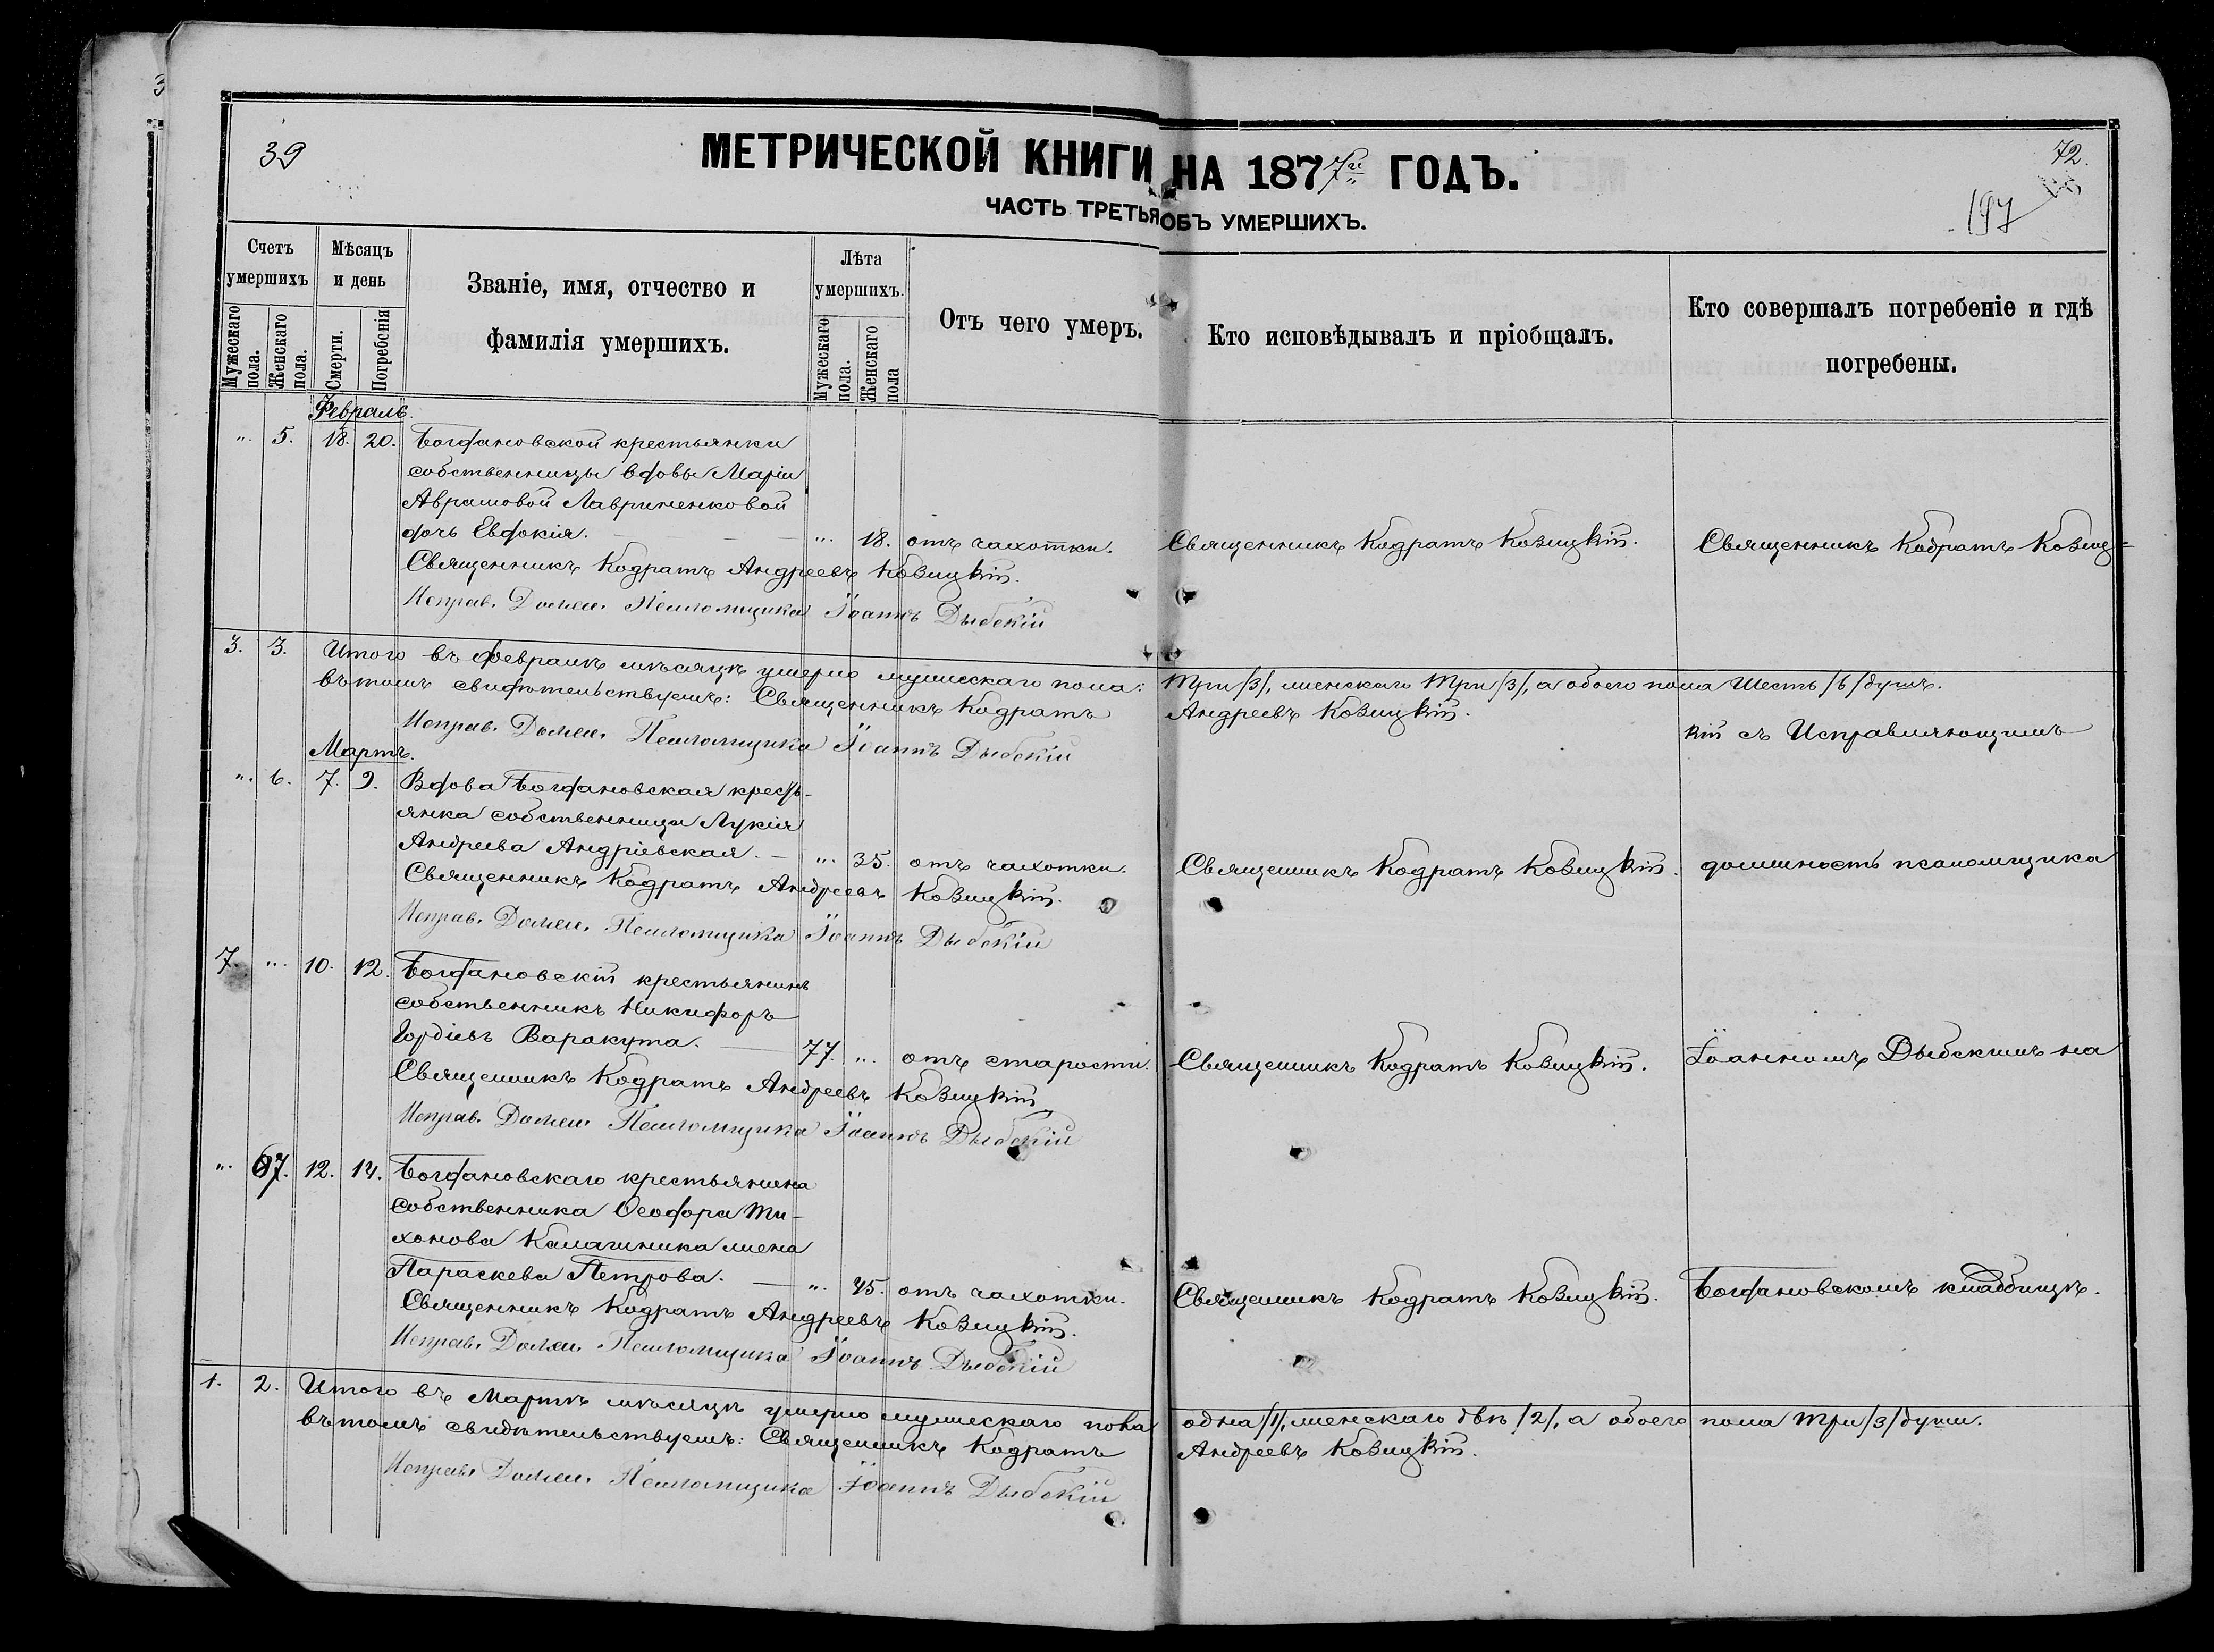 39
МЕТРИЧЕСКОЙ КНИГИ НА 1877й ГОДЪ.
72.
197
ЧАСТЬ ТРЕТЬЯ ОБЪ УМЕРШИХЪ.
Счетъ умершихъ
Мужескаго пола.
Женскаго пола.
Мѣсяцъ и день
Смерти.
Погребенія
Званіе, имя, отчество и
фамилія умершихъ.
Лѣта умершихъ.
Мужескаго пола.
Женскаго пола
Отъ чего умеръ.
Кто исповѣдывалъ и пріобщалъ.
Кто совершалъ погребеніе и гдѣ
погребены.
Февраль.
". 5. 18. 20. Богдановской крестьянки
собственницы вдовы Маріи
Аврамовой Лавриненковой
дочь Евдокія. — ". 18. отъ чахотки. Священникъ Кодратъ Козицкій. Священникъ Кодратъ Козиц=
Священникъ Кодратъ Андреевъ Козицкій.
Исправ. Должн. Псаломщика Іоаннъ Дыбскій
3. 3. Итого въ Февралѣ мѣсяцѣ умерло мужескаго пола: Три /3/, женскаго Три /3/, а обоего пола Шесть /6/ душъ.
въ томъ свидѣтельствуемъ: Священникъ Кодратъ Андреевъ Козицкій.
Исправ. Должн. Псаломщика Іоаннъ Дыбскій
кій съ Исправляющимъ
Мартъ.
". 6. 7. 9. Вдова Богдановская кресть-
янка собственница Лукія
Андреева Андріевская. — ". 35. отъ чахотки. Священникъ Кодратъ Козицкій. должность псаломщика
Священникъ Кодратъ Андреевъ Козицкій.
Исправ. Должн. Псаломщика Іоаннъ Дыбскій
7. ". 10. 12. Богдановскій крестьянинъ
собственникъ Никифоръ
Гордіевъ Варакута. — 77. ". отъ старости. Священникъ Кодратъ Козицкій. Іоанномъ Дыбскимъ на
Священникъ Кодратъ Андреевъ Козицкій
Исправ. Должн. Псаломщика Іоаннъ Дыбскій
". 7. 12. 14. Богдановскаго крестьянина
собственника Ѳеодора Ти-
хонова Калашника жена
Параскева Петрова. — ". 45. отъ чахотки. Священникъ Кодратъ Козицкій. Богдановскомъ кладбищѣ.
Священникъ Кодратъ Андреевъ Козицкій.
Исправ. Должн. Псаломщика Іоаннъ Дыбскій
1. 2. Итого въ Мартѣ мѣсяцѣ умерло мужескаго пола одна /1/, женскаго двѣ /2/, а обоего пола три /3/ души.
въ томъ свидѣтельствуемъ: Священникъ Кодратъ Андреевъ Козицкій.
Исправ. Должн. Псаломщика Іоаннъ Дыбскій